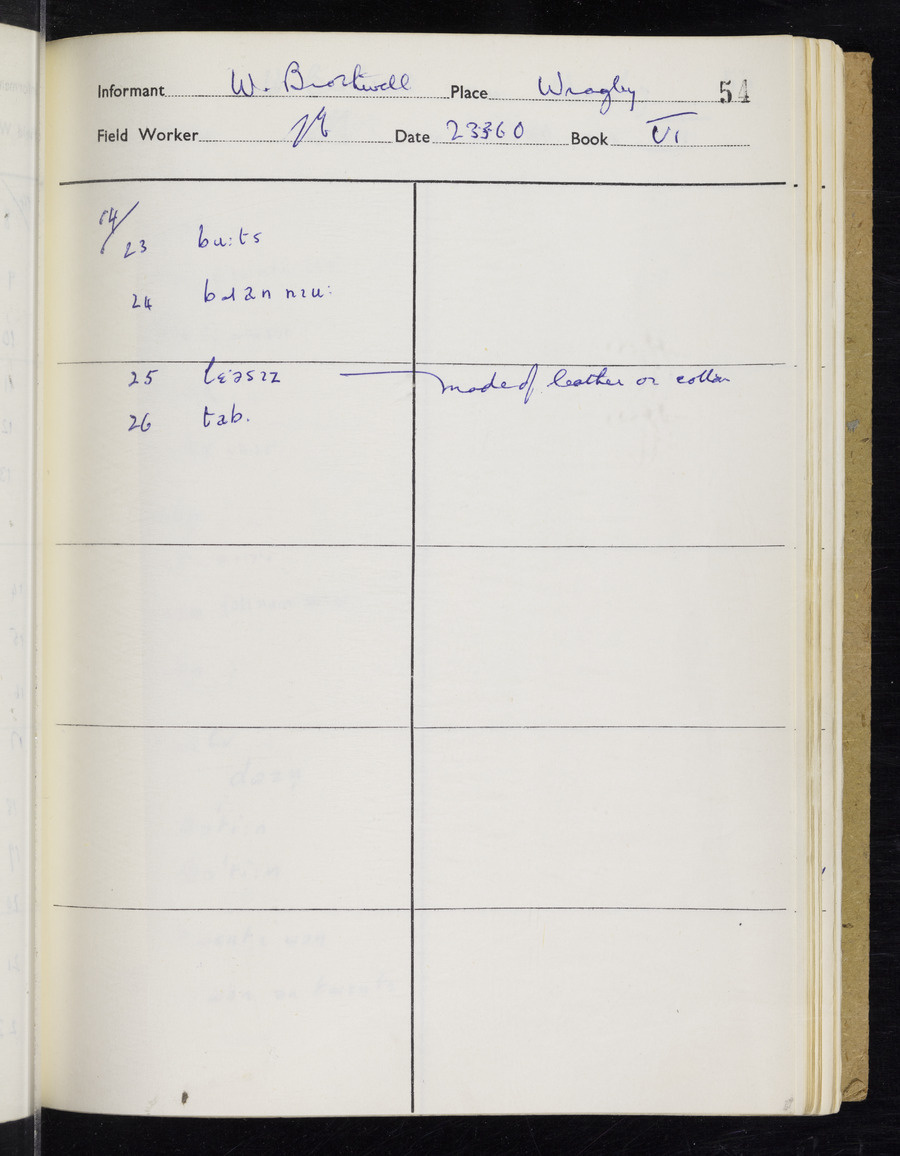 Informant W. Brockwell Place Wragby 54
Field Worker Date 23360 Book VI
14/
23 bu:ts
24
25 lɛ:əsɪz made of leather or cotton
26 tab.